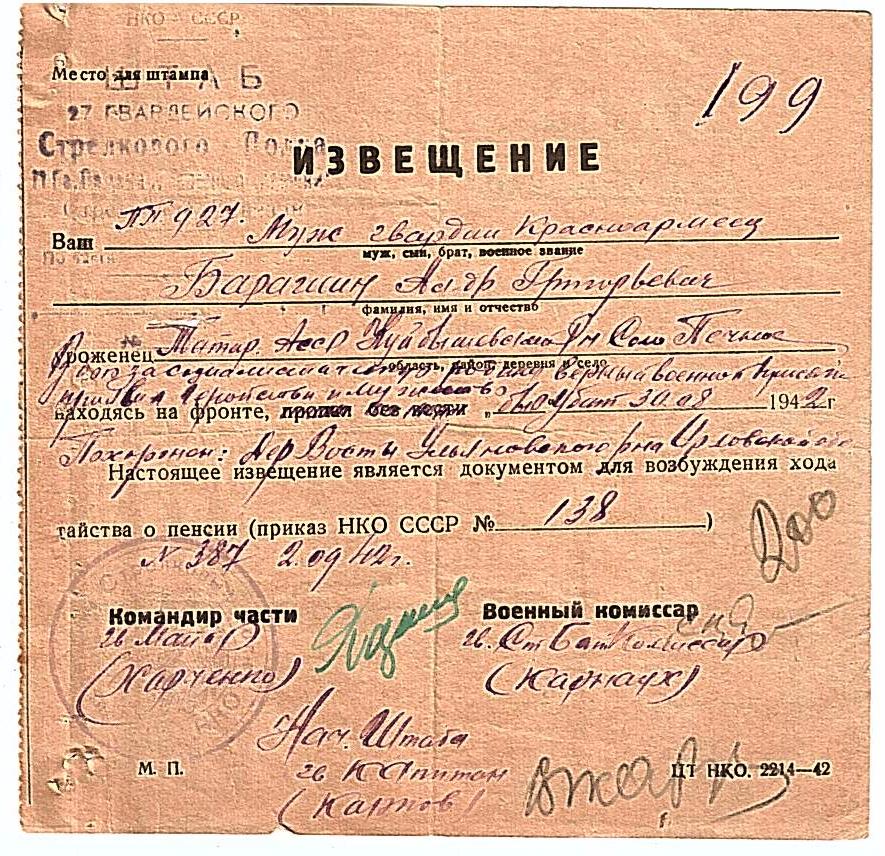 НКО - СССР
Место для штампа
ШТАБ
199
27 ГВАРДЕЙСКОГО
Стрелкового Полка
ИЗВЕЩЕНИЕ
ПП 927.
Ваш Муж гвардии Красноармеец
муж, сын, брат, военное звание
Ал-др Григорьевич
фамилия, имя и отчество
Уроженец Татар. Асср Куйбышевского Р-н Село Печное
область, район, деревня и село
В бою за социалистическую родину верный военной присяге
проявив геройство и мужество
находясь на фронте, пропал без вести „был убит 30.08 1942г
Похоронен: дер Восты Ульяновского р-на Орловской обл
Настоящее извещение является документом для возбуждения хода
тайства о пенсии (приказ НКО СССР № 138)
200
N 387 2.09 42г.
Командир части
Военный комиссар
гв Майор
гв. Ст Бат Комиссар
(Харченко)
(Карнаух)
НКО
Нач. Штаба
М. П.
гв Капитан
ЦТ НКО. 2214—42
(Карпов)